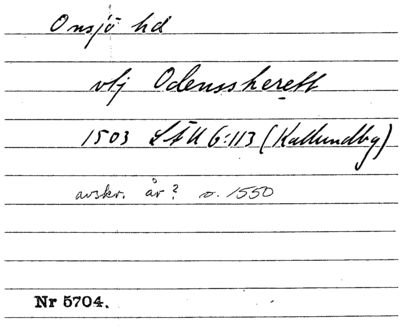 Onsjö hd
vtj Odenssherett
1503 LÄU 6:113 (Kallundbg)
avskr. år? o. 1550
Nr 5704.